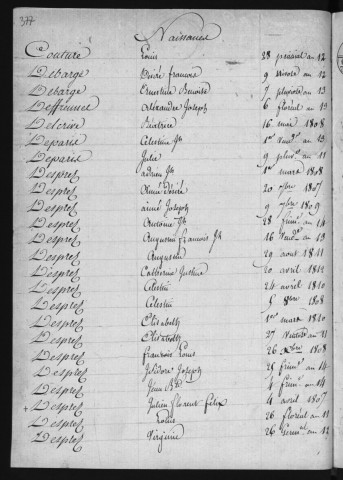 377
Naissances
Couturé Louis 28 prairial an 12
Debarge Désiré francois 9 nivose an 12
Debarge Ernestine Benoite 7 pluviose an 13
Deffrennes Alexandre Joseph 6 floréal an 13
Delerive Béatrice 16 mai 1808
Deparis Célestin Jh 1er Vend.re an 13
Deparis Julie 9 pluv.se an 11
Desprez adrien Jh 1er mars 1808
Desprez aimé Désiré 20 9bre 1807
Desprez aimé Joseph 9 9bre 1809
Desprez antoine Jh 28 frim.re an 14
Desprez Augustin francois Jh 16 Vend.re an 13
Desprez Augustin 29 aout 1811
Desprez Catherine Justine 20 avril 1812
Desprez Célestin 24 avril 1810
Desprez Célestin 5 8bre 1808
Desprez Elisabeth 1er mars 1810
Desprez Elisabeth 27 Ventose an 11
Desprez francois Louis 26 Xbre 1808
Desprez Isidore Joseph 25 frim.re an 14
Desprez Jean Bte 4 frim.re an 14
+ Desprez Julien florent félix 4 avril 1807
Desprez Louis 26 floréal an 11
Desprez Virginie 26 Germ.al an 12